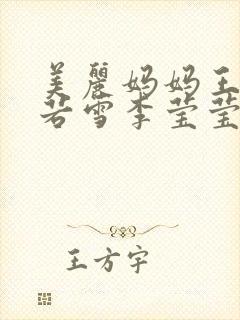 美麗妈妈王
若雪李莹莹
王方宇